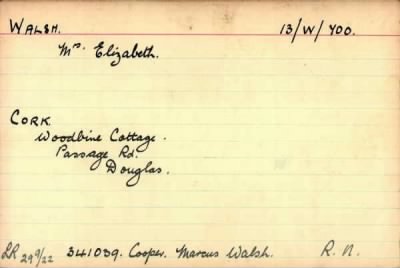 WALSH. 13/W/400.
Mrs. Elizabeth.
CORK
Woodbine Cottage.
Passage Rd.
Douglas.
LR 29 9/22 341039. Cooper. Marcus Walsh. R.N.